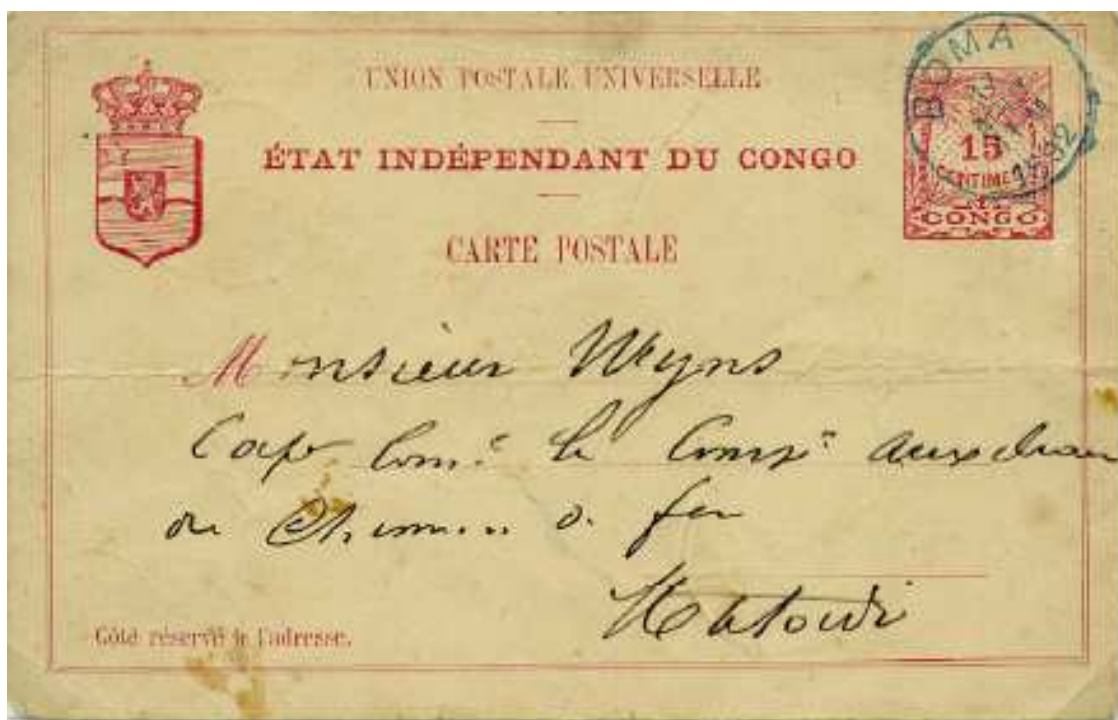 UNION POSTALE UNIVERSELLE
ÉTAT INDÉPENDANT DU CONGO
CARTE POSTALE
BOMA
15
CENTIMES
CONGO
Monsieur Weyns
Cap Comt la Compie auxiliaire
du Chemin de fer
Matadi
Côté réservé à l'adresse.